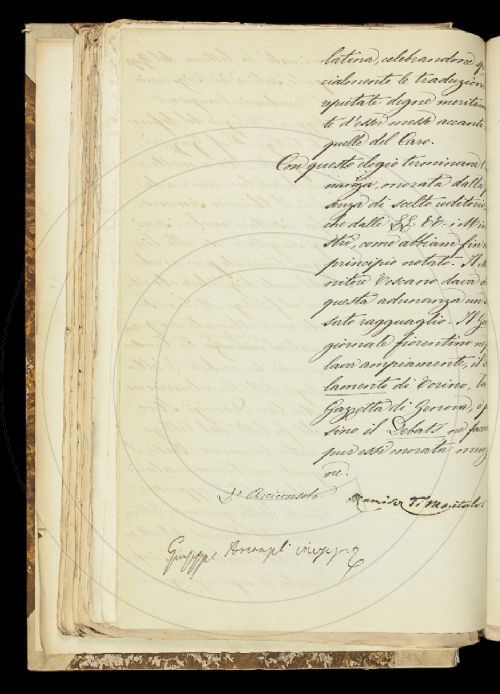 latina, celebrandone
cialmente le traduzion
reputate degne meritam
te d'esser messe accanto
quelle del Caro.
Con questo elogio terminava l
nanza, onorata dalla
di scelto uditorio
che dalle LL. EE. i Min
stri, come abbiam fin
principio notato. Il Mo
nitore Toscano dava
questa adunanza un
sato ragguaglio. Il G
giornale fiorentino
lava ampiamente, il
lamento di Torino, la
Gazzetta di Genova, e
sino il Debats ne face
pur esso onorata menz
ne.
L'Arciconsolo
Giuseppe